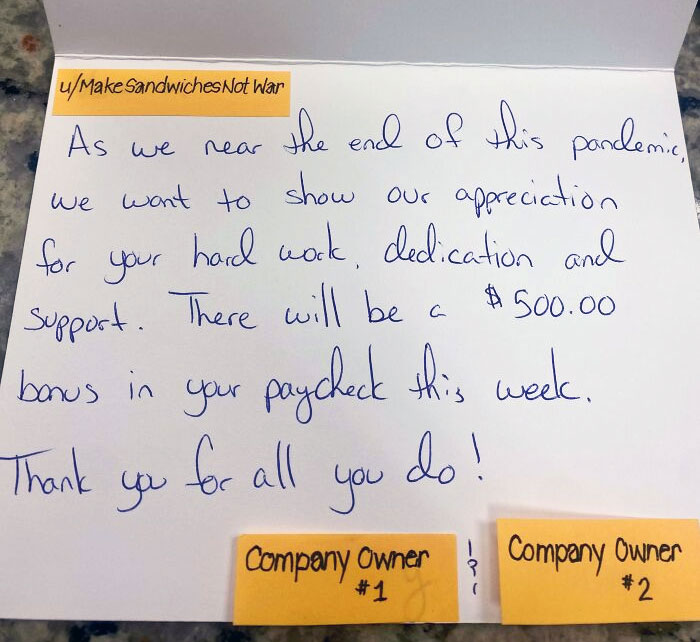 u/MakeSandwichesNotWar
As we near the end of this pandemic,
we want to show our appreciation
for your hard work, dedication and
support. There will be a $500.00
bonus in your paycheck this week.
Thank you for all you do!
Company Owner #1 & Company Owner #2